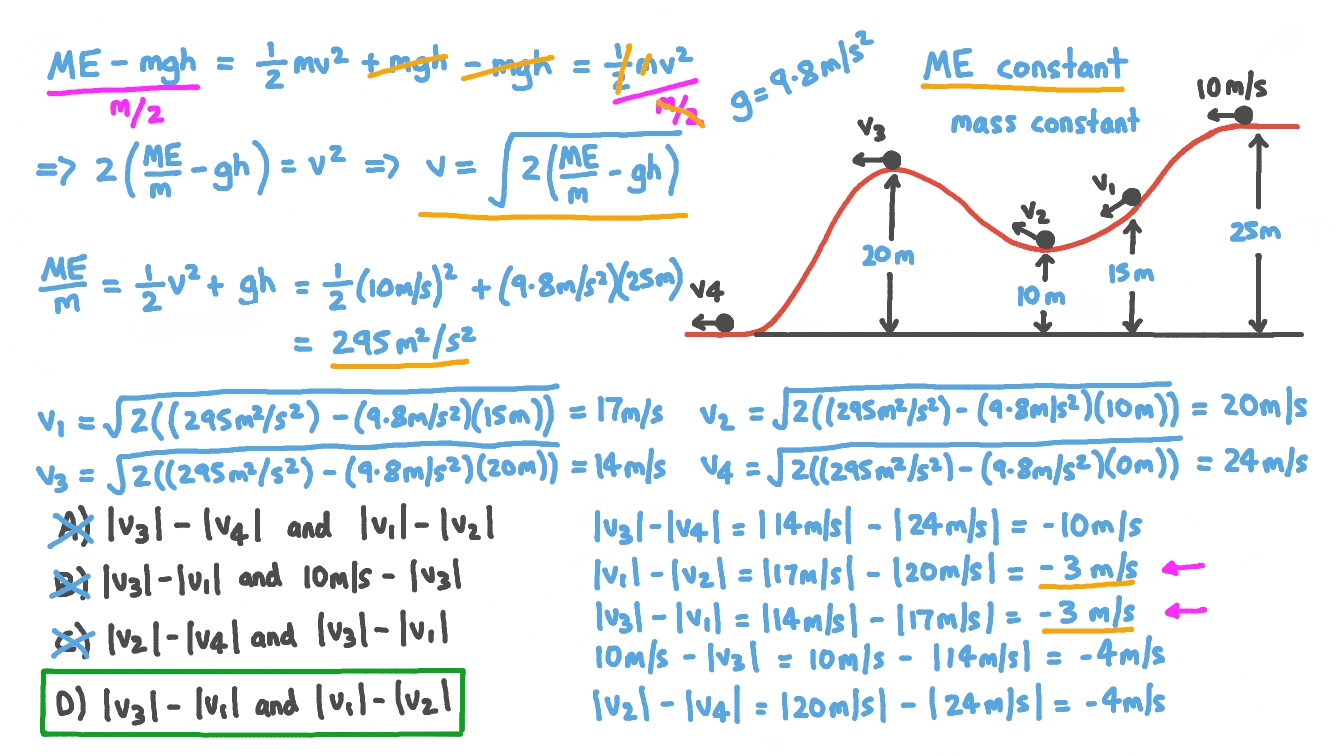 ME - mgh = 1/2 mv² + mgh - mgh = 1/2 mv²
m/2 m/2
g=9.8m/s²
ME constant
mass constant
=> 2(ME/m - gh) = v² => v = √2(ME/m - gh)
ME/m = 1/2 v² + gh = 1/2 (10m/s)² + (9.8m/s²)(25m)
= 295 m²/s²
10m/s
v₃
v₁
v₂
20m
25m
15m
10m
v4
v₁ = √2((295m²/s²) - (9.8m/s²)(15m)) = 17m/s
v₂ = √2((295m²/s²) - (9.8m/s²)(10m)) = 20m/s
v₃ = √2((295m²/s²) - (9.8m/s²)(20m)) = 14m/s
v₄ = √2((295m²/s²) - (9.8m/s²)(0m)) = 24m/s
A) |v₃| - |v₄| and |v₁| - |v₂|
B) |v₃| - |v₁| and 10m/s - |v₃|
C) |v₂| - |v₄| and |v₃| - |v₁|
D) |v₃| - |v₁| and |v₁| - |v₂|
|v₃| - |v₄| = |14m/s| - |24m/s| = -10m/s
|v₁| - |v₂| = |17m/s| - |20m/s| = -3 m/s
|v₃| - |v₁| = |14m/s| - |17m/s| = -3 m/s
10m/s - |v₃| = 10m/s - |14m/s| = -4m/s
|v₂| - |v₄| = |20m/s| - |24m/s| = -4m/s